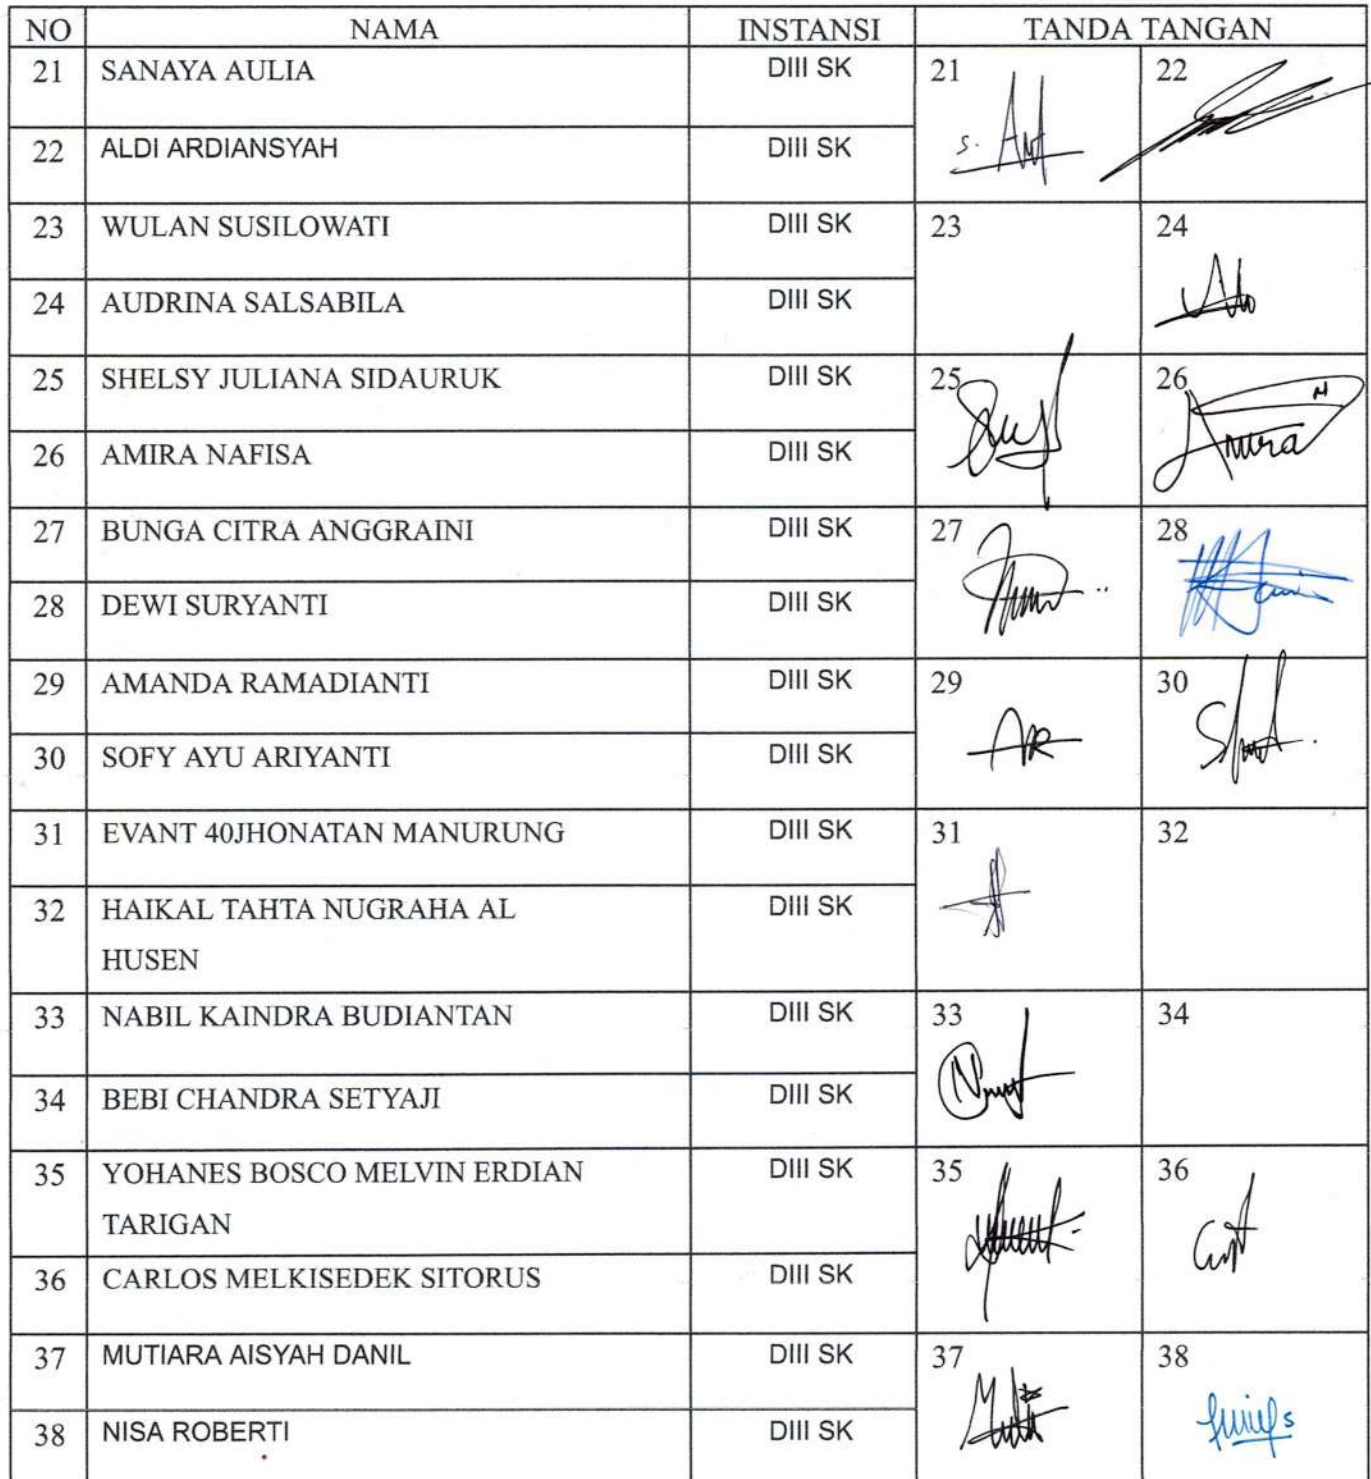 NO NAMA INSTANSI TANDA TANGAN
21 SANAYA AULIA DIII SK 21 22
22 ALDI ARDIANSYAH DIII SK
23 WULAN SUSILOWATI DIII SK 23 24
24 AUDRINA SALSABILA DIII SK
25 SHELSY JULIANA SIDAURUK DIII SK 25 26
26 AMIRA NAFISA DIII SK
27 BUNGA CITRA ANGGRAINI DIII SK 27 28
28 DEWI SURYANTI DIII SK
29 AMANDA RAMADIANTI DIII SK 29 30
30 SOFY AYU ARIYANTI DIII SK
31 EVANT 40JHONATAN MANURUNG DIII SK 31 32
32 HAIKAL TAHTA NUGRAHA AL DIII SK
HUSEN
33 NABIL KAINDRA BUDIANTAN DIII SK 33 34
34 BEBI CHANDRA SETYAJI DIII SK
35 YOHANES BOSCO MELVIN ERDIAN DIII SK 35 36
TARIGAN
36 CARLOS MELKISEDEK SITORUS DIII SK
37 MUTIARA AISYAH DANIL DIII SK 37 38
38 NISA ROBERTI DIII SK